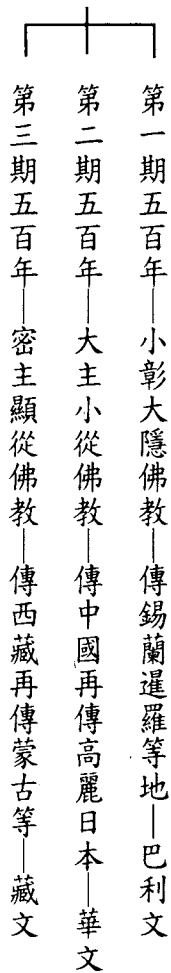 第一期五百年——小彰大隱佛教——傳錫蘭暹羅等地——巴利文
第二期五百年——大主小從佛教——傳中國再傳高麗日本——華文
第三期五百年——密主顯從佛教——傳西藏再傳蒙古等——藏文